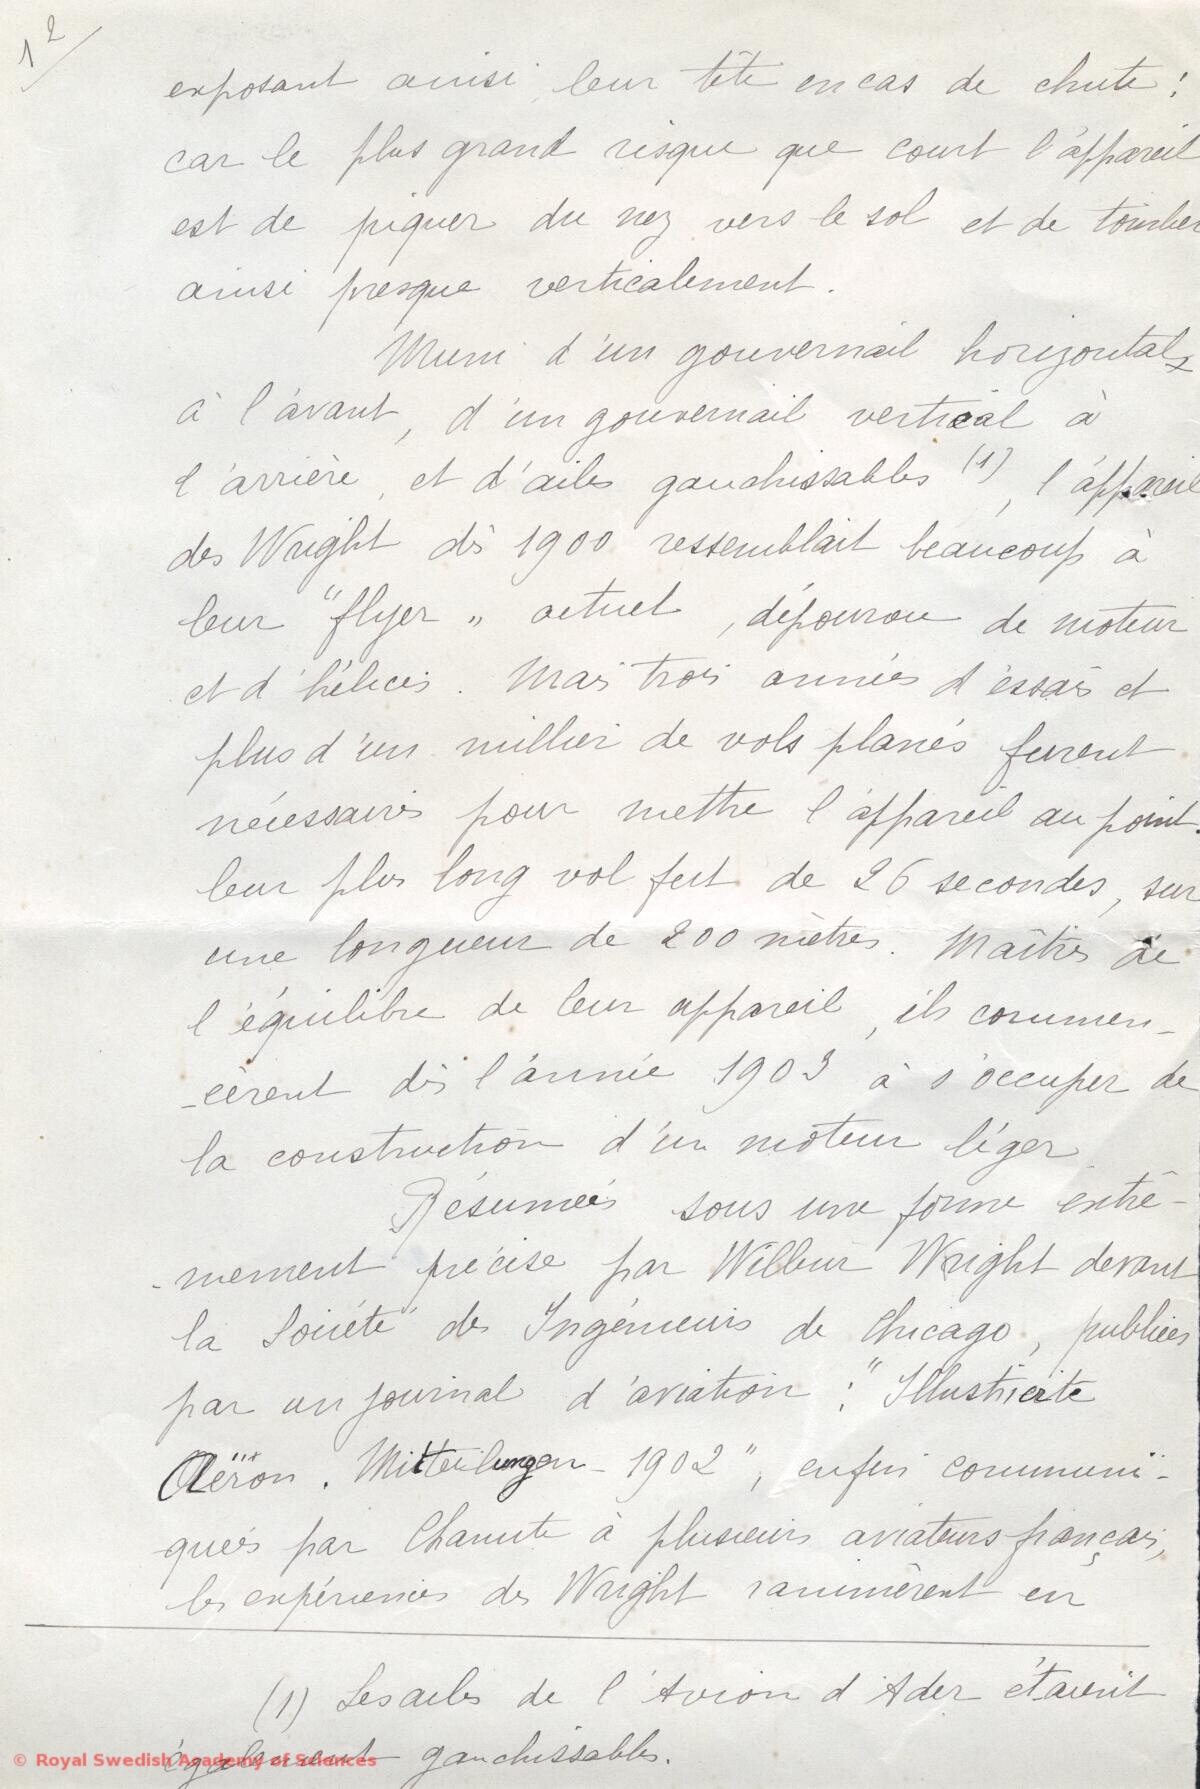 12/
exposant ainsi leur tête en cas de chute :
car le plus grand risque que court l'appareil
est de piquer du nez vers le sol et de tomber
ainsi presque verticalement.
Muni d'un gouvernail horizontal
à l'avant, d'un gouvernail vertical à
l'arrière, et d'ailes gauchissables (1), l'appareil
des Wright dès 1900 ressemblait beaucoup à
leur "flyer„ actuel, dépourvu de moteur
et d'hélices. Mais trois années d'essais et
plus d'un millier de vols planés furent
nécessaires pour mettre l'appareil au point.
leur plus long vol fut de 26 secondes, sur
une longueur de 200 mètres. Maîtres de
l'équilibre de leur appareil, ils commen-
-cèrent dès l'année 1903 à s'occuper de
la construction d'un moteur léger
Résumées sous une forme extrê-
-mement précise par Wilbur Wright devant
la Société des Ingénieurs de Chicago, publiées
par un journal d'aviation : "Illustrierte
Aëron. Mitteilungen - 1902", enfin communi-
quées par Chanute à plusieurs aviateurs français,
les expériences des Wright ranimèrent en
(1) Les ailes de l'Avion d'Ader étaient
également gauchissables.
© Royal Swedish Academy of Sciences